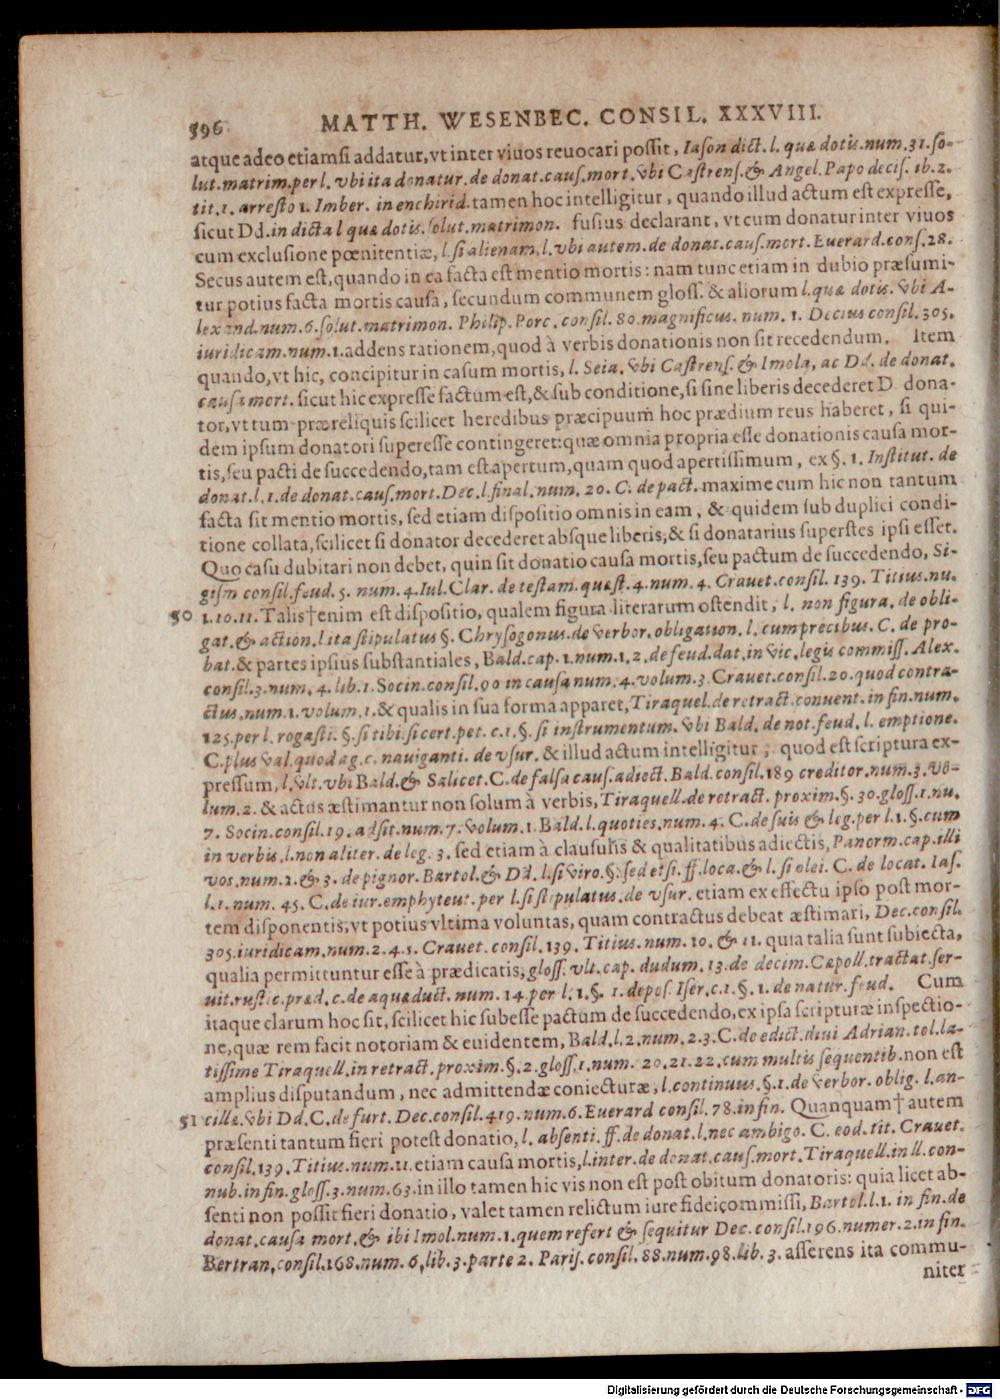 596 MATTH. WESENBEC. CONSIL. XXXVIII.
atque adeo etiamsi addatur, vt inter viuos reuocari possit, Iason dict. l. quæ dotis. num. 31. so-
lut. matrim. per l. vbi ita donatur. de donat. caus. mort. vbi Castrens. & Angel. Papo decis. ib. 2.
tit. 1. arresto 1. Imber. in enchirid. tamen hoc intelligitur, quando illud actum est expresse,
sicut Dd. in dicta l quæ dotis. solut. matrimon. fusius declarant, vt cum donatur inter viuos
cum exclusione pœnitentiæ, l. si alienam, l. vbi autem. de donat. caus. mort. Euerard. cons. 28.
Secus autem est, quando in ea facta est mentio mortis: nam tunc etiam in dubio præsumi-
tur potius facta mortis causa, secundum communem gloss. & aliorum l. quæ dotis. vbi A-
lexand. num. 6. solut. matrimon. Philip. Porc. consil. 80. magnificus. num. 1. Decius consil. 305.
iuridicam. num. 1. addens rationem, quod à verbis donationis non sit recedendum. Item
quando, vt hic, concipitur in casum mortis, l. Seia. vbi Castrens. & Imola, ac Dd. de donat.
causa mort. sicut hic expresse factum est, & sub conditione, si sine liberis decederet D. dona-
tor, vt tum præ reliquis scilicet heredibus præcipuum hoc prædium reus haberet, si qui-
dem ipsum donatori superesse contingeret: quæ omnia propria esse donationis causa mor-
tis, seu pacti de succedendo, tam est apertum, quam quod apertissimum, ex §. 1. Institut. de
donat. l. 1. de donat. caus. mort. Dec. l. final. num. 20. C. de pact. maxime cum hic non tantum
facta sit mentio mortis, sed etiam dispositio omnis in eam, & quidem sub duplici condi-
tione collata, scilicet si donator decederet absque liberis, & si donatarius superstes ipsi esset.
Quo casu dubitari non debet, quin sit donatio causa mortis, seu pactum de succedendo, Si-
gism consil. feud. 5. num. 4. Iul. Clar. de testam. quæst. 4. num. 4. Crauet. consil. 139. Titius. nu.
50 1. 10. 11. Talis† enim est dispositio, qualem figura literarum ostendit, l. non figura. de obli-
gat. & action. l ita stipulatus §. Chrysogonus. de verbor. obligation. l. cum precibus. C. de pro-
bat. & partes ipsius substantiales, Bald. cap. 1. num. 1. 2. de feud. dat. in vic. legis commiss. Alex.
consil. 3. num. 4. lib. 1. Socin. consil. 90 in causa num. 4. volum. 3. Crauet. consil. 20. quod contra-
ctus. num. 1. volum. 1. & qualis in sua forma apparet, Tiraquel. de retract. conuent. in fin. num.
125. per l. rogasti. §. si tibi. si cert. pet. c. 1. §. si instrumentum. vbi Bald. de not. feud. l. emptione.
C. plus val. quod ag. c. nauiganti. de vsur. & illud actum intelligitur, quod est scriptura ex-
pressum, l. vlt. vbi Bald. & Salicet. C. de falsa caus. adiect. Bald. consil. 189 creditor. num. 3. vo-
lum. 2. & actus æstimantur non solum à verbis, Tiraquell. de retract. proxim. §. 30. gloss. 1. nu.
7. Socin. consil. 19. adsit. num. 7. volum. 1. Bald. l. quoties. num. 4. C. de suis & leg. per l. 1. §. cum
in verbis. l. non aliter. de leg. 3. sed etiam à clausulis & qualitatibus adiectis, Panorm. cap. illi
vos. num. 2. & 3. de pignor. Bartol. & Dd. l. si viro. §. sed etsi. ff. loca. & l. si olei. C. de locat. Ias.
l. 1. num. 45. C. de iur. emphyteut. per l. si stipulatus. de vsur. etiam ex effectu ipso post mor-
tem disponentis, vt potius vltima voluntas, quam contractus debeat æstimari, Dec. consil.
305. iuridicam. num. 2. 4. 5. Crauet. consil. 139. Titius. num. 10. & 11. quia talia sunt subiecta,
qualia permittuntur esse à prædicatis, gloss. vlt. cap. dudum. 13. de decim. Cæpoll. tractat. ser-
uit. rustic. præd. c. de aquæduct. num. 14. per l. 1. §. 1. depos. Iser. c. 1. §. 1. de natur. feud. Cum
itaque clarum hoc sit, scilicet hic subesse pactum de succedendo, ex ipsa scripturæ inspectio-
ne, quæ rem facit notoriam & euidentem, Bald. l. 2. num. 2. 3. C. de edict. diui Adrian. tol. la-
tissime Tiraquell. in retract. proxim. §. 2. gloss. 1. num. 20. 21. 22. cum multis sequentib. non est
amplius disputandum, nec admittendæ coniecturæ, l. continuus. §. 1. de verbor. oblig. l. an-
51 cillæ. vbi Dd. C. de furt. Dec. consil. 419. num. 6. Euerard consil. 78. in fin. Quanquam† autem
præsenti tantum fieri potest donatio, l. absenti. ff. de donat. l. nec ambigo. C. eod. tit. Crauet.
consil. 139. Titius. num. 11. etiam causa mortis, l. inter. de donat. caus. mort. Tiraquell. in ll. con-
nub. in fin. gloss. 3. num. 63. in illo tamen hic vis non est post obitum donatoris: quia licet ab-
senti non possit fieri donatio, valet tamen relictum iure fideicommissi, Bartol. l. 1. in fin. de
donat. causa mort. & ibi Imol. num. 1. quem refert & sequitur Dec. consil. 196. numer. 2. in fin.
Bertran. consil. 168. num. 6. lib. 3. parte 2. Paris. consil. 88. num. 98. lib. 3. asserens ita commu-
niter
Digitalisierung gefördert durch die Deutsche Forschungsgemeinschaft - DFG